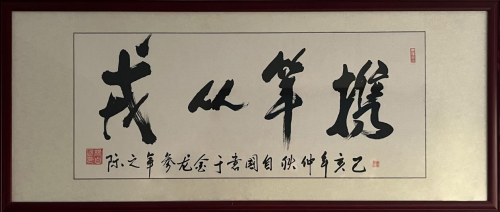 携筆从戎
乙亥年仲秋自国书于金龙参军之际